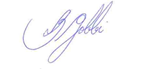 B Gobbi